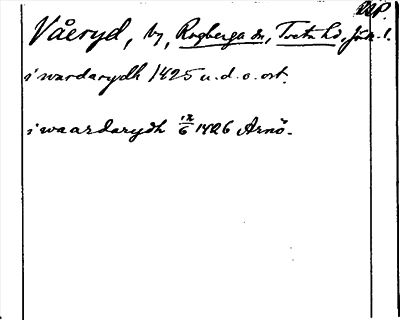 Våeryd, by, Rogberga sn, Tveta hd, Jön. l.
i wardarydh 1425 u.d.o.ort.
i waardarydh 12/6 1426 Arnö.